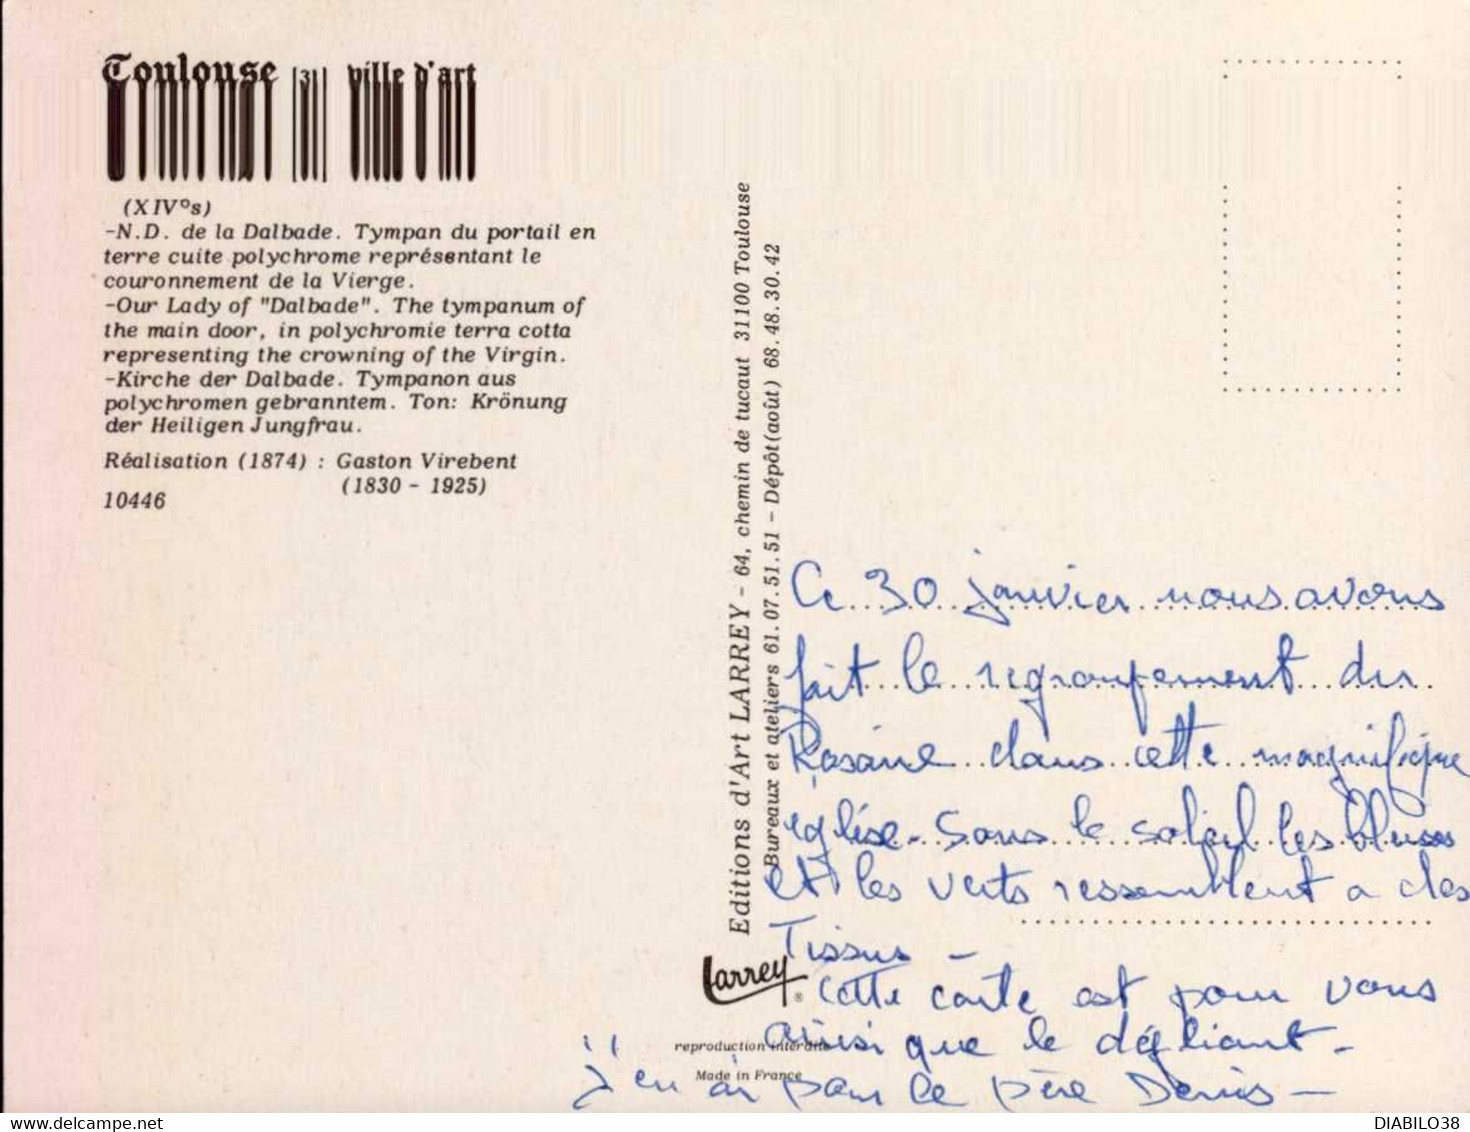 Toulouse [31] ville d'art
(XIV°s)
-N.D. de la Dalbade. Tympan du portail en
terre cuite polychrome représentant le
couronnement de la Vierge.
-Our Lady of "Dalbade". The tympanum of
the main door, in polychromie terra cotta
representing the crowning of the Virgin.
-Kirche der Dalbade. Tympanon aus
polychromen gebranntem. Ton: Krönung
der Heiligen Jungfrau.
Réalisation (1874) : Gaston Virebent
(1830 - 1925)
10446
Editions d'Art LARREY - 64, chemin de tucaut 31100 Toulouse
Bureaux et ateliers 61.07.51.51 - Dépôt(août) 68.48.30.42
Larrey ®
reproduction interdite
Made in France
Ce 30 janvier nous avons
fait le regroupement du
Rosaire dans cette magnifique
église - Sous le soleil les bleus
et les verts ressemblent a des
Tissus -
Cette carte est pour vous
ainsi que le dépliant -
j'en ai pour le père Denis -
DIABILO38